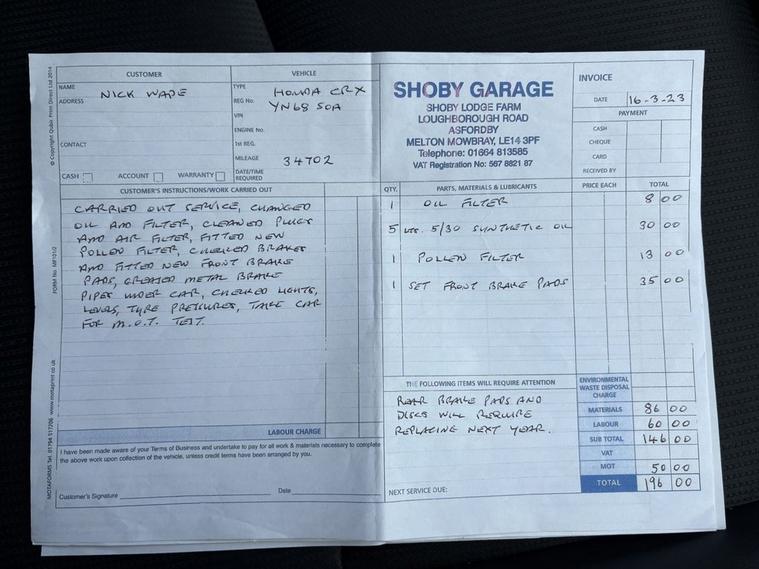 CUSTOMER
VEHICLE
NAME NICK WADE
ADDRESS
CONTACT
CASH
ACCOUNT
WARRANTY
TYPE HONDA CRX
REG No. YN68 SOA
VIN
ENGINE No.
1st REG.
MILEAGE 34702
DATE/TIME
REQUIRED
SHOBY GARAGE
SHOBY LODGE FARM
LOUGHBOROUGH ROAD
ASFORDBY
MELTON MOWBRAY, LE14 3PF
Telephone: 01664 813585
VAT Registration No: 567 8821 87
INVOICE
DATE 16-3-23
PAYMENT
CASH
CHEQUE
CARD
RECEIVED BY
CUSTOMER'S INSTRUCTIONS/WORK CARRIED OUT
CARRIED OUT SERVICE, CHANGED
OIL AND FILTER, CLEANED PLUGS
AND AIR FILTER, FITTED NEW
POLLEN FILTER, CHECKED BRAKES
AND FITTED NEW FRONT BRAKE
PADS, GREASED METAL BRAKE
PIPES UNDER CAR, CHECKED LIGHTS,
LEVELS, TYRE PRESSURES, TAKE CAR
FOR M.O.T. TEST.
LABOUR CHARGE
I have been made aware of your Terms of Business and undertake to pay for all work & materials necessary to complete
the above work upon collection of the vehicle, unless credit terms have been arranged by you.
Customer's Signature
Date
QTY. PARTS, MATERIALS & LUBRICANTS PRICE EACH TOTAL
1 OIL FILTER 8 00
5 LTS. 5/30 SYNTHETIC OIL 30 00
1 POLLEN FILTER 13 00
1 SET FRONT BRAKE PADS 35 00
THE FOLLOWING ITEMS WILL REQUIRE ATTENTION
REAR BRAKE PADS AND
DISCS WILL REQUIRE
REPLACING NEXT YEAR.
NEXT SERVICE DUE:
ENVIRONMENTAL
WASTE DISPOSAL
CHARGE
MATERIALS 86 00
LABOUR 60 00
SUB TOTAL 146 00
VAT
MOT 50 00
TOTAL 196 00
© Copyright Qubix Print Direct Ltd 2014
FORM No. MF101/2
MOTAFORMS Tel. 01794 517706 www.motaprint.co.uk